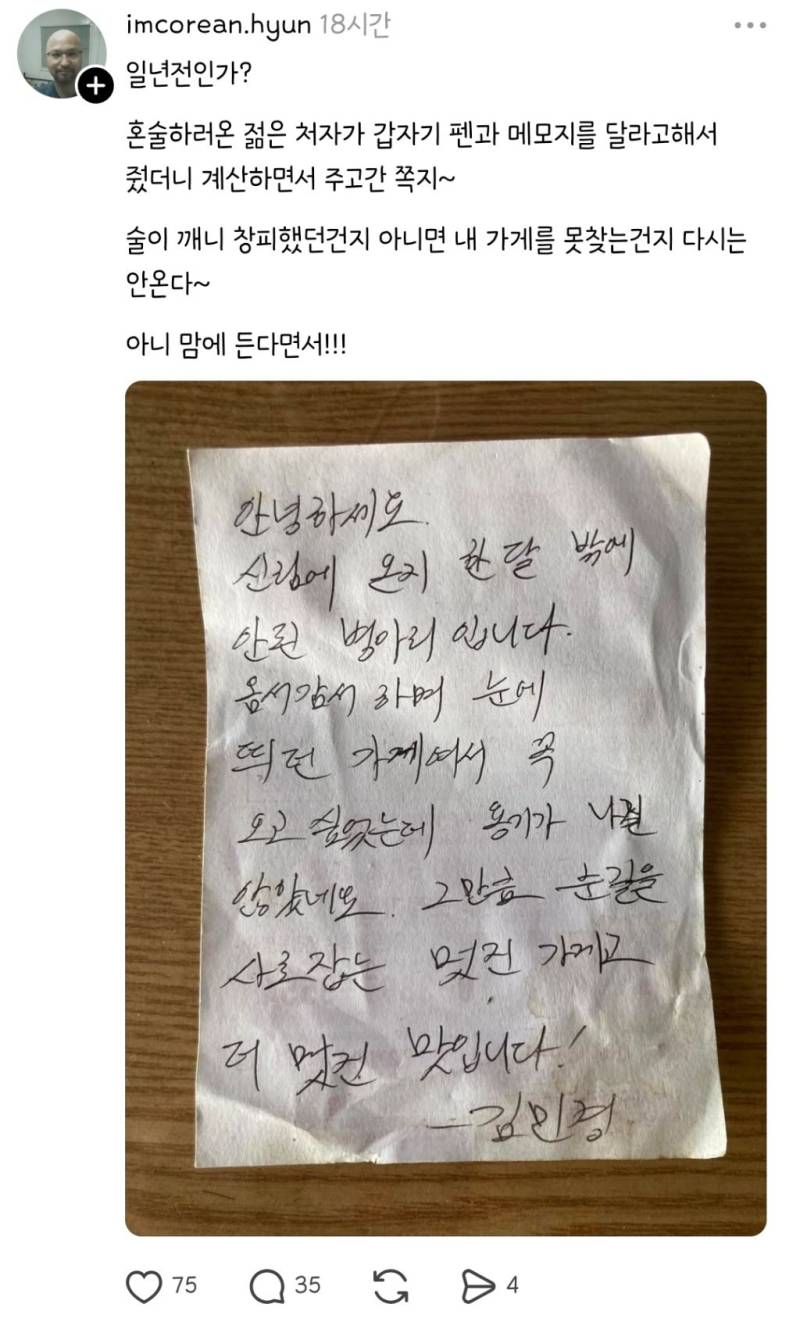 imcorean.hyun 18시간
일년전인가?
혼술하러온 젊은 처자가 갑자기 펜과 메모지를 달라고해서
줬더니 계산하면서 주고간 쪽지~
술이 깨니 창피했던건지 아니면 내 가게를 못찾는건지 다시는
안온다~
아니 맘에 든다면서!!!
안녕하세요.
신림에 온지 한 달 밖에
안된 병아리 입니다.
옴서감서 하며 눈에
띄던 가게여서 꼭
오고 싶었는데 용기가 나질
않았네요. 그만큼 눈길을
사로잡는 멋진 가게고
더 멋진 맛입니다!
-김민정
75 35 4